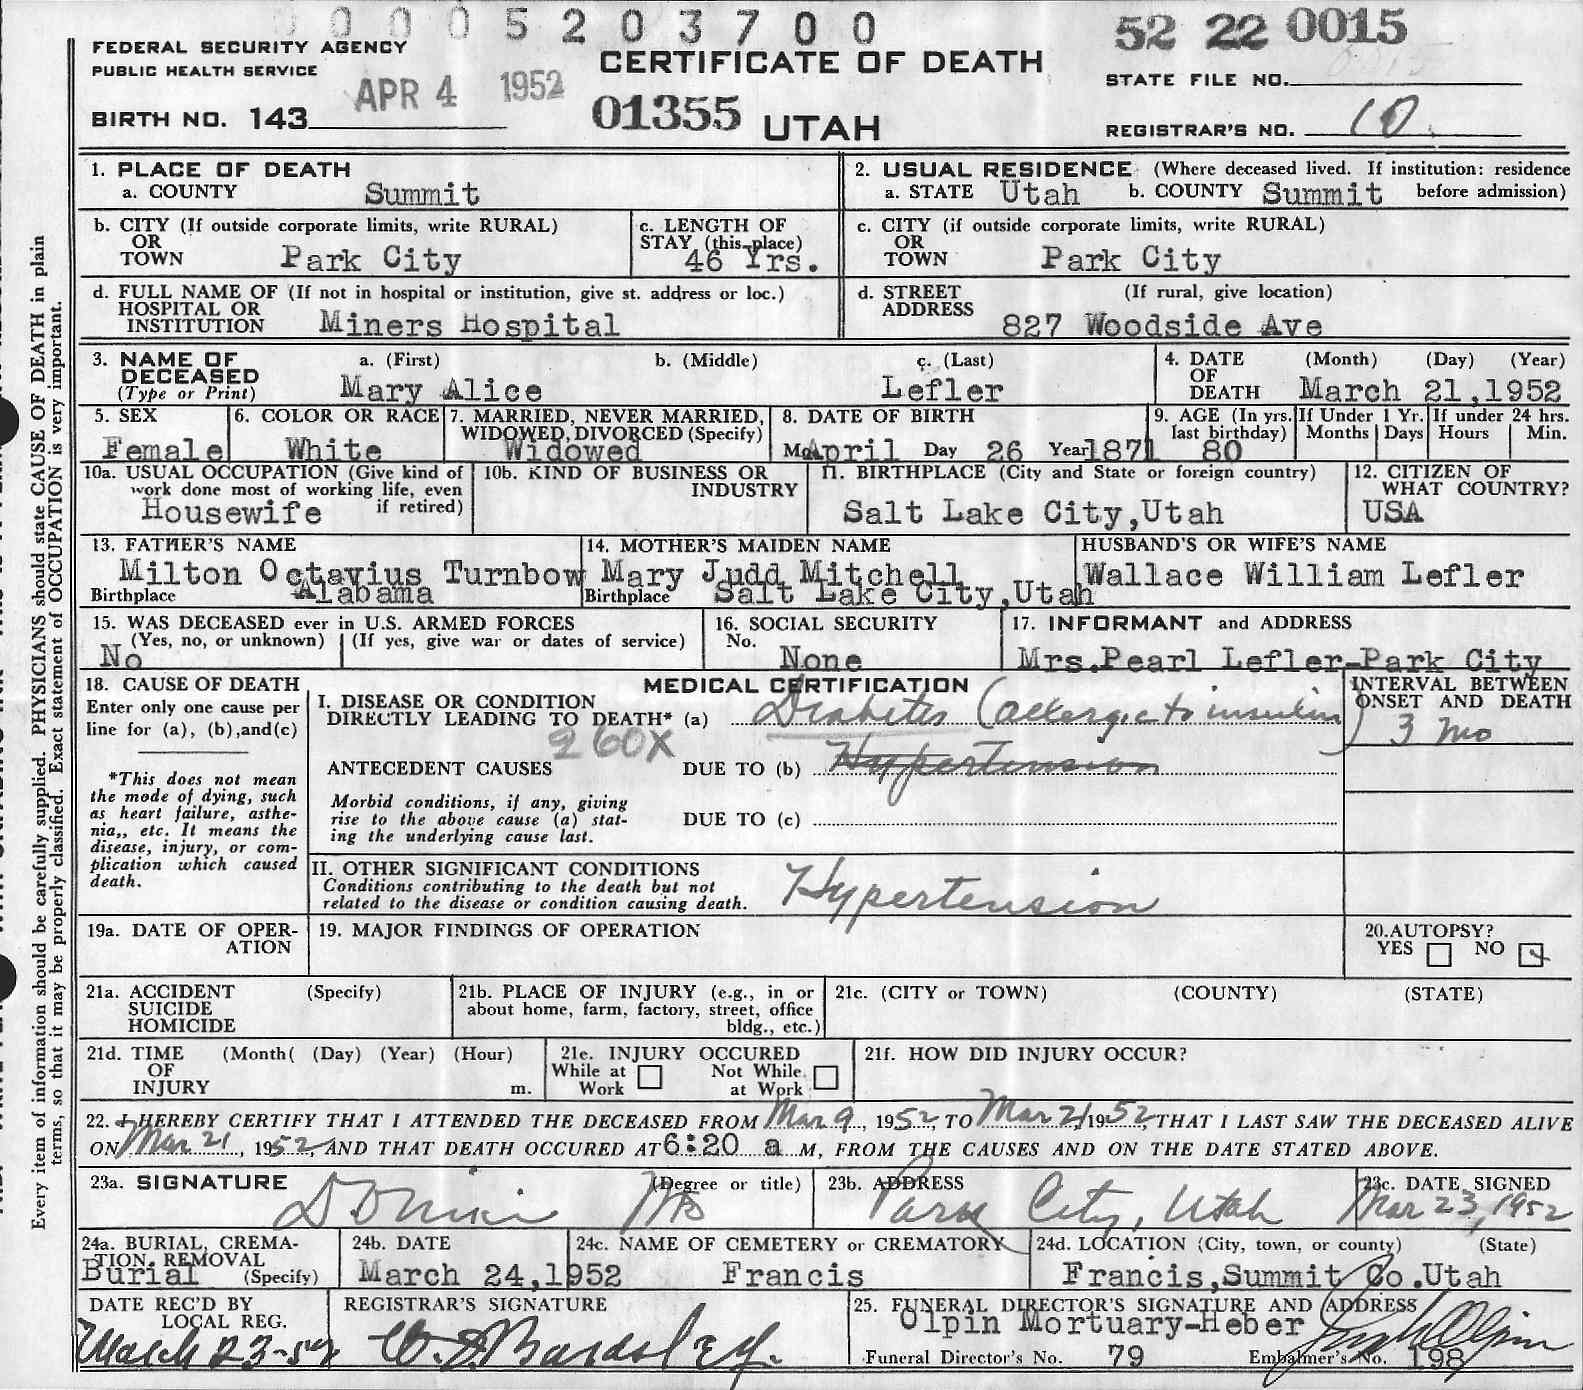 0 0 0 5 2 0 3 7 0 0
52 22 0015
FEDERAL SECURITY AGENCY
PUBLIC HEALTH SERVICE
CERTIFICATE OF DEATH
STATE FILE NO.
APR 4 1952
BIRTH NO. 143
01355 UTAH
REGISTRAR'S NO. 10
1. PLACE OF DEATH
a. COUNTY Summit
2. USUAL RESIDENCE (Where deceased lived. If institution: residence
a. STATE Utah b. COUNTY Summit before admission)
b. CITY (If outside corporate limits, write RURAL)
OR
TOWN Park City
c. LENGTH OF
STAY (this place)
46 Yrs.
c. CITY (if outside corporate limits, write RURAL)
OR
TOWN Park City
d. FULL NAME OF (If not in hospital or institution, give st. address or loc.)
HOSPITAL OR
INSTITUTION Miners Hospital
d. STREET (If rural, give location)
ADDRESS
827 Woodside Ave
3. NAME OF a. (First) b. (Middle) c. (Last)
DECEASED
(Type or Print) Mary Alice Lefler
4. DATE (Month) (Day) (Year)
OF
DEATH March 21,1952
5. SEX
Female
6. COLOR OR RACE
White
7. MARRIED, NEVER MARRIED,
WIDOWED, DIVORCED (Specify)
Widowed
8. DATE OF BIRTH
Mo April Day 26 Year 1871
9. AGE (In yrs.
last birthday)
80
If Under 1 Yr.
Months Days
If under 24 hrs.
Hours Min.
10a. USUAL OCCUPATION (Give kind of
work done most of working life, even
if retired)
Housewife
10b. KIND OF BUSINESS OR
INDUSTRY
11. BIRTHPLACE (City and State or foreign country)
Salt Lake City,Utah
12. CITIZEN OF
WHAT COUNTRY?
USA
13. FATHER'S NAME
Milton Octavius Turnbow
Birthplace Alabama
14. MOTHER'S MAIDEN NAME
Mary Judd Mitchell
Birthplace Salt Lake City,Utah
HUSBAND'S OR WIFE'S NAME
Wallace William Lefler
15. WAS DECEASED ever in U.S. ARMED FORCES
(Yes, no, or unknown) (If yes, give war or dates of service)
No
16. SOCIAL SECURITY
No.
None
17. INFORMANT and ADDRESS
Mrs.Pearl Lefler-Park City
18. CAUSE OF DEATH
Enter only one cause per
line for (a), (b),and(c)
*This does not mean
the mode of dying, such
as heart failure, asthe-
nia,, etc. It means the
disease, injury, or com-
plication which caused
death.
MEDICAL CERTIFICATION
I. DISEASE OR CONDITION
DIRECTLY LEADING TO DEATH* (a) Diabetes (allergic to insulin)
260X
ANTECEDENT CAUSES DUE TO (b) Hypertension
Morbid conditions, if any, giving
rise to the above cause (a) stat-
ing the underlying cause last.
DUE TO (c)
INTERVAL BETWEEN
ONSET AND DEATH
3 mo
II. OTHER SIGNIFICANT CONDITIONS
Conditions contributing to the death but not
related to the disease or condition causing death.
Hypertension
19a. DATE OF OPER-
ATION
19. MAJOR FINDINGS OF OPERATION
20.AUTOPSY?
YES NO
21a. ACCIDENT (Specify)
SUICIDE
HOMICIDE
21b. PLACE OF INJURY (e.g., in or
about home, farm, factory, street, office
bldg., etc.)
21c. (CITY or TOWN) (COUNTY) (STATE)
21d. TIME (Month( (Day) (Year) (Hour)
OF
INJURY m.
21e. INJURY OCCURED
While at Not While
Work at Work
21f. HOW DID INJURY OCCUR?
22. I HEREBY CERTIFY THAT I ATTENDED THE DECEASED FROM Mar 9, 1952, TO Mar 21 1952, THAT I LAST SAW THE DECEASED ALIVE
ON Mar 21, 1952, AND THAT DEATH OCCURED AT 6:20 a M, FROM THE CAUSES AND ON THE DATE STATED ABOVE.
23a. SIGNATURE (Degree or title)
MD
23b. ADDRESS
Park City, Utah
23c. DATE SIGNED
Mar 23, 1952
24a. BURIAL, CREMA-
TION, REMOVAL
Burial (Specify)
24b. DATE
March 24,1952
24c. NAME OF CEMETERY or CREMATORY
Francis
24d. LOCATION (City, town, or county) (State)
Francis,Summit Co.Utah
DATE REC'D BY
LOCAL REG.
March 23-52
REGISTRAR'S SIGNATURE
25. FUNERAL DIRECTOR'S SIGNATURE AND ADDRESS
Olpin Mortuary-Heber
Funeral Director's No. 79 Embalmer's No. 198
Every item of information should be carefully supplied. PHYSICIANS should state CAUSE OF DEATH in plain
terms, so that it may be properly classified. Exact statement of OCCUPATION is very important.